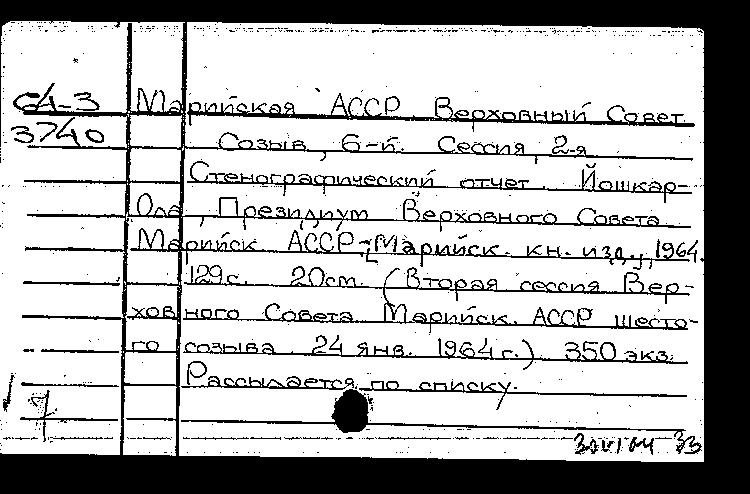 С4-3 Марийская АССР Верховный Совет
3740 Созыв, 6-й. Сессия, 2-я
Стенографический отчет. Йошкар-
Ола, Президиум Верховного Совета
Марийск. АССР,-[Марийск. кн. изд.], 1964.
129с. 20см. (Вторая сессия Вер-
ховного Совета Марийск. АССР шесто-
го созыва 24 янв. 1964 г.) 350 экз.
Рассылается по списку.
33